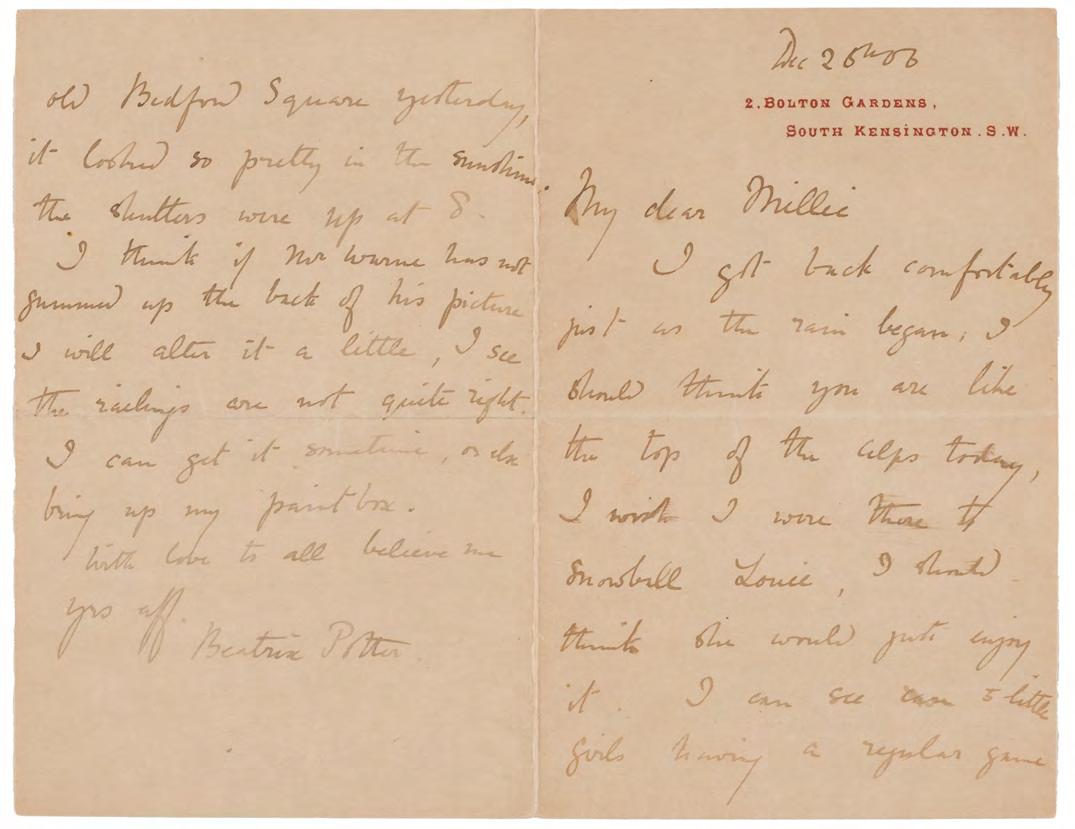 Dec 26th 06
2, BOLTON GARDENS,
SOUTH KENSINGTON. S.W.
My dear Millie
I got back comfortably
just as the rain began; I
should think you are like
the top of the alps today,
I wish I were there to
snowball Louie, I should
think she would just enjoy
it. I can see 5 little
girls having a regular game
old Bedford Square yesterday,
it looked so pretty in the sunshine.
the shutters were up at 8.
I think if Mr Warne has not
gummed up the back of his picture
I will alter it a little, I see
the railings are not quite right.
I can get it sometime, or else
bring up my paint box.
With love to all believe me
yrs aff.
Beatrix Potter.